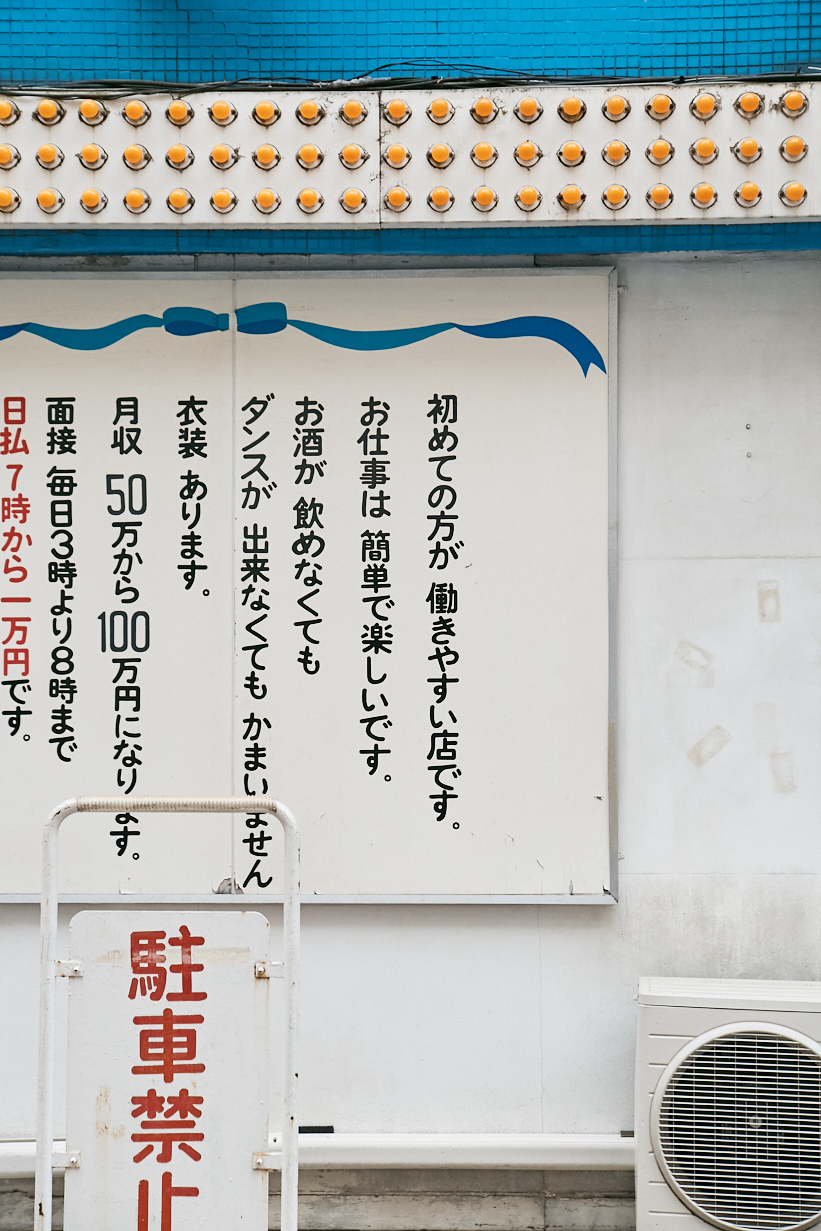 初めての方が 働きやすい店です。
お仕事は 簡単で楽しいです。
お酒が 飲めなくても
ダンスが 出来なくても かまいません
衣装 あります。
月収 50万から100万円になります。
面接 毎日3時より8時まで
日払 7時から一万円です。
駐車禁止